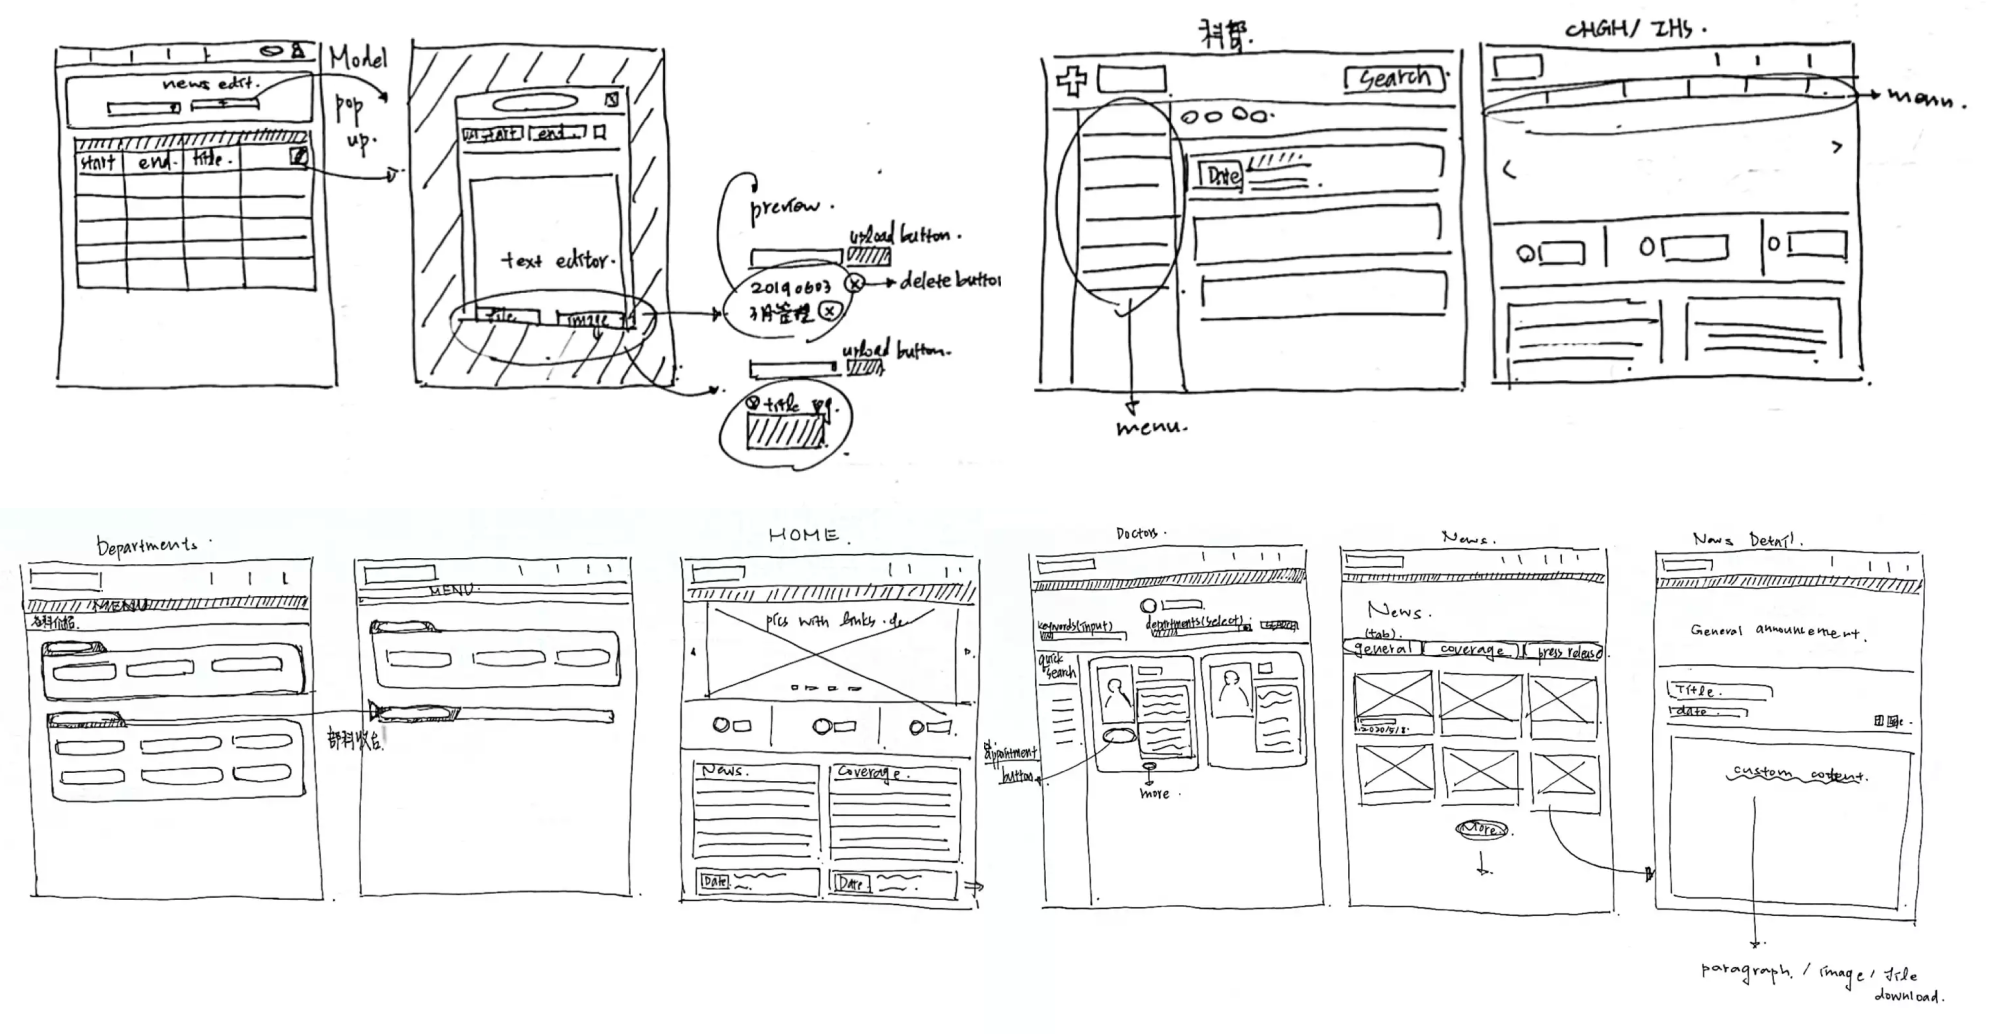 Model
pop
up.
news edit.
start
end.
title.
start
end
text editor.
file
image
preview.
upload button.
20190603
delete button
upload button.
title
科部.
Search
Date
menu.
CHGH/ IHS.
menu.
Departments.
MENU
各科介紹.
部科收合.
MENU.
HOME.
pics with links.
News.
Coverage.
Date
Date.
Doctors.
keywords(input)
departments(select).
quick
search
appointment
button
more.
News.
News.
(tab).
general
coverage
press release
2020/5/8.
More.
News Detail.
General announcement.
Title.
date.
custom content.
paragraph. / image / file
download.